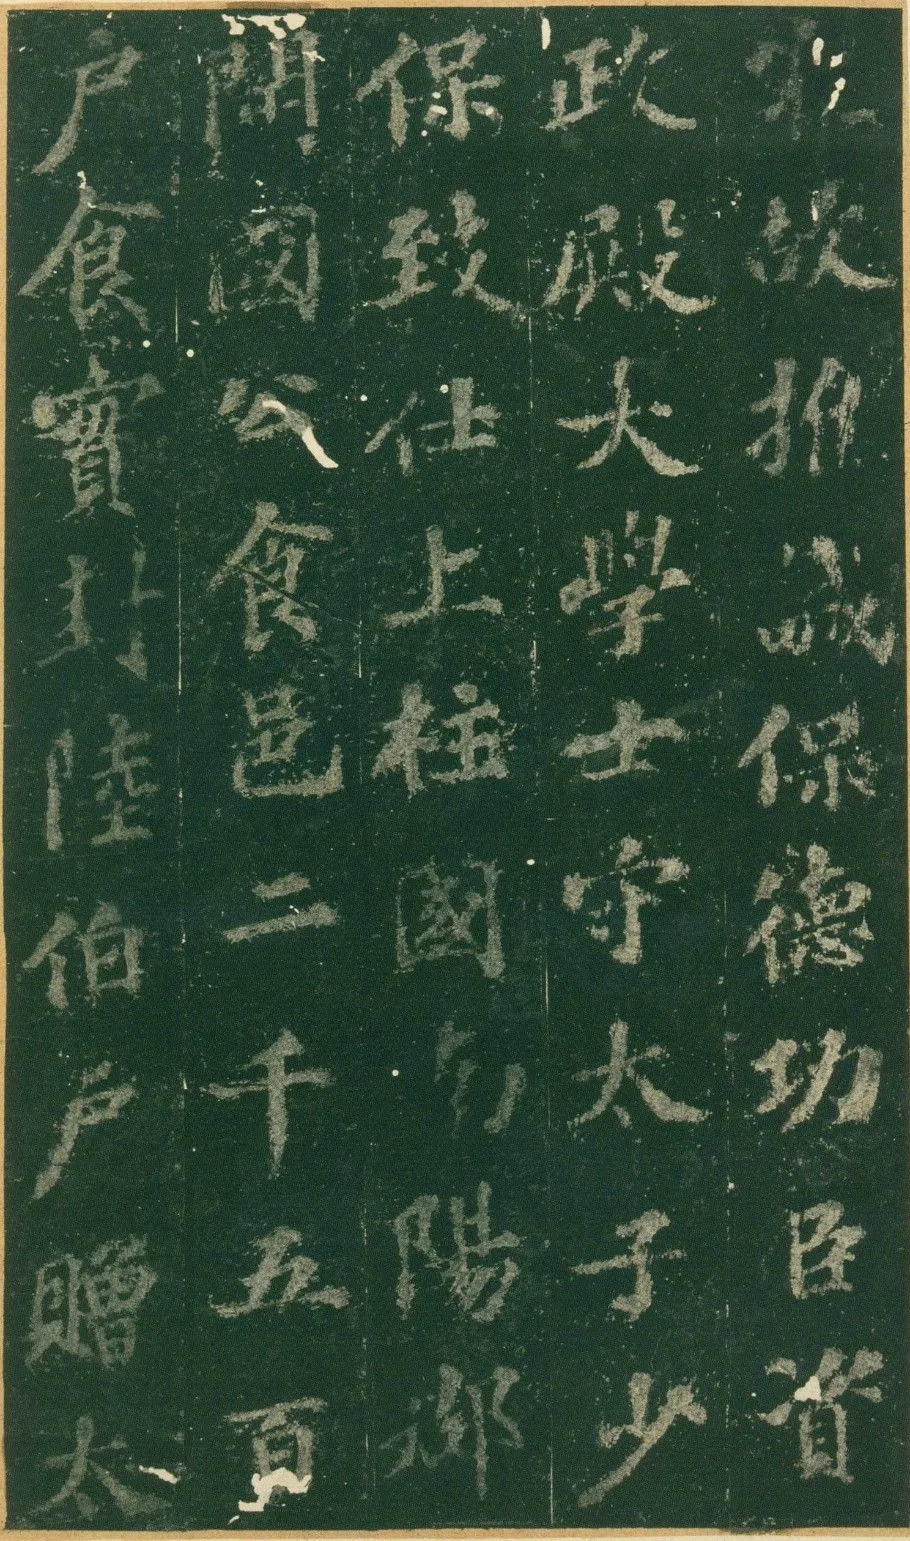 故推誠保德功臣資
政殿大學士守太子少
保致仕上柱國南陽郡
開國公食邑二千五百
户食實封陸伯户贈太